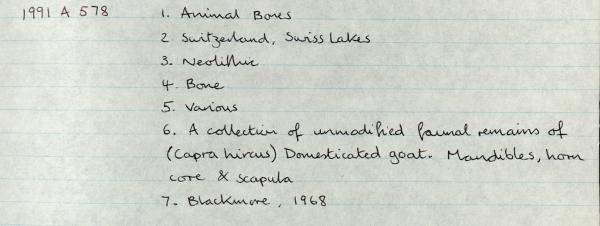 1991 A 578 1. Animal Bones
2 Switzerland, Swiss Lakes
3. Neolithic
4. Bone
5. Various
6. A collection of unmodified faunal remains of
(Capra hircus) Domesticated goat. Mandibles, horn
core & scapula
7. Blackmore, 1968